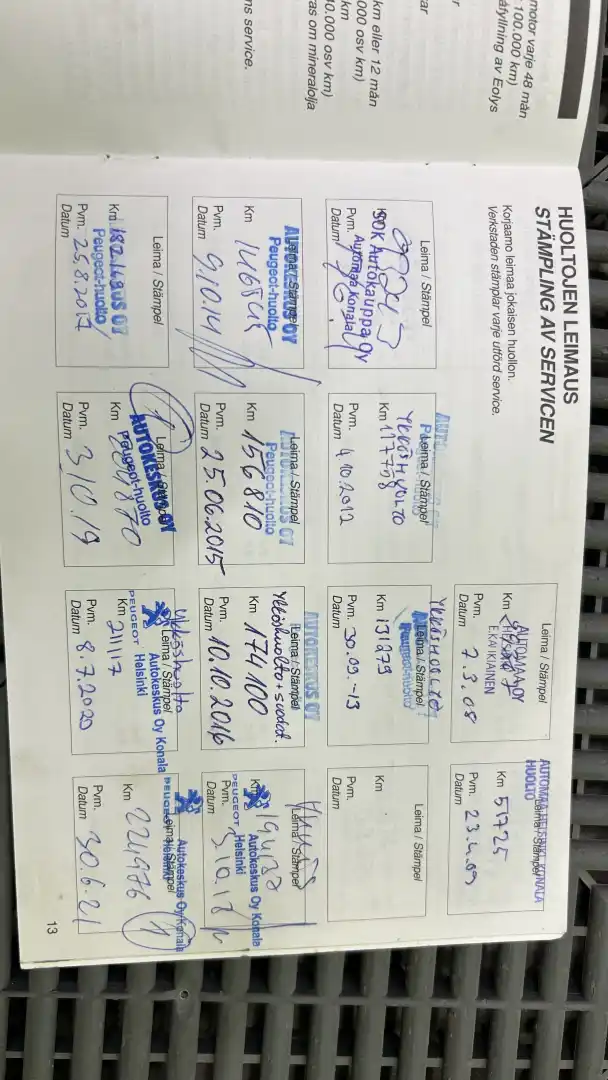 motor varje 48 mån
100.000 km)
åfyllning av Eolys
km eller 12 mån
000 osv km)
km
10.000 osv km)
ras om mineralolja
ns service.
HUOLTOJEN LEIMAUS
STÄMPLING AV SERVICEN
Korjaamo leimaa jokaisen huollon.
Verkstaden stämplar varje utförd service.
Leima / Stämpel
AUTOMAA OY
EKAIKIAINEN
Km
Pvm. 7.3.08
Datum
AUTOMAA HELSINKI KONALA
HUOLTO
Leima / Stämpel
Km 51725
Pvm. 23.4.09
Datum
Leima / Stämpel
Km
SOK Autokauppa Oy
Automaa Konala
Pvm.
Datum
Leima / Stämpel
Peugeot-huolto
YLLÖSHUOLTO
Km 117798
Pvm. 4.10.2012
Datum
YLLÖSHUOLTO
AUTOKESKUS OY
Leima / Stämpel
Peugeot-huolto
Km 131279
Pvm. 30.09.-13
Datum
Leima / Stämpel
Km
Pvm.
Datum
AUTOKESKUS OY
Leima / Stämpel
Peugeot-huolto
Km 146845
Pvm. 9.10.14
Datum
Leima / Stämpel
AUTOKESKUS OY
Peugeot-huolto
Km 156810
Pvm. 25.06.2015
Datum
AUTOKESKUS OY
Leima / Stämpel
Ylläshuolto + suodat.
Km 174100
Pvm. 10.10.2016
Datum
Leima / Stämpel
Km
Autokeskus Oy Konala
PEUGEOT Helsinki
Pvm. 3.10.18
Datum
Leima / Stämpel
Km
Peugeot-huolto
Pvm. 25.8.2017
Datum
Leima / Stämpel
AUTOKESKUS OY
Peugeot-huolto
Km
Pvm. 3/10.19
Datum
Leima / Stämpel
Autokeskus Oy Konala
PEUGEOT Helsinki
Km 211117
Pvm. 8.7.2020
Datum
Autokeskus Oy Konala
PEUGEOT Helsinki
Leima / Stämpel
Km 221976
Pvm. 30.6.21
Datum
13